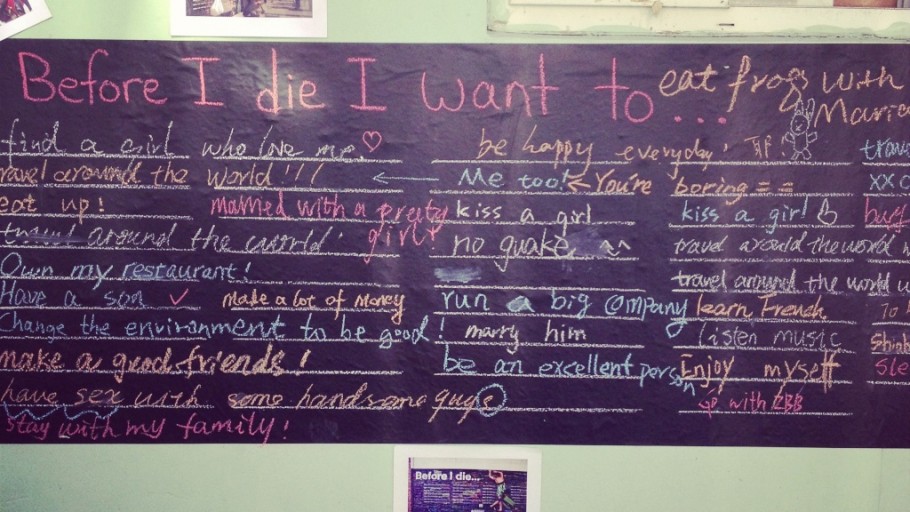 Before I die I want to...
eat frogs with
Marie
find a girl who love me
ravel around the world!!!
eat up!
married with a pretty
girl!
around the world
Own my restaurant!
Have a son
make a lot of money
Change the environment to be good!
make a good friends!
have sex with some handsome guys
stay with my family!
be happy everyday
Me too!
You're boring = =
kiss a girl
no quake ^^
run a big company
marry him
be an excellent person
kiss a girl
travel around the world
travel around the world
learn French
listen music
Enjoy myself
with ZBB
trav
Before I die...